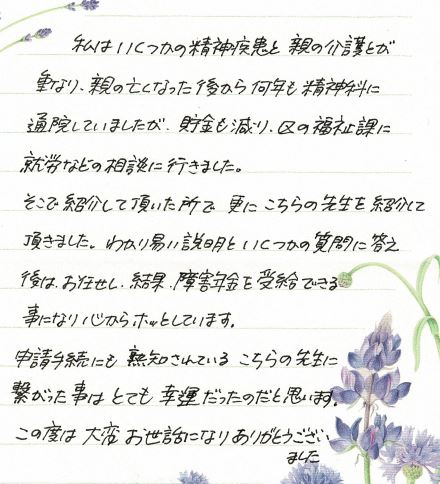 私はいくつかの精神疾患と親の介護とが
重なり、親の亡くなった後から何年も精神科に
通院していましたが、貯金も減り、区の福祉課に
就労などの相談に行きました。
そこで紹介して頂いた所で更にこちらの先生を紹介して
頂きました。わかり易い説明といくつかの質問に答え
後は、お任せし、結果、障害年金を受給できる
事になり心からホッとしています。
申請手続にも熟知されているこちらの先生に
繋がった事はとても幸運だったのだと思います。
この度は大変お世話になりありがとうござい
ました